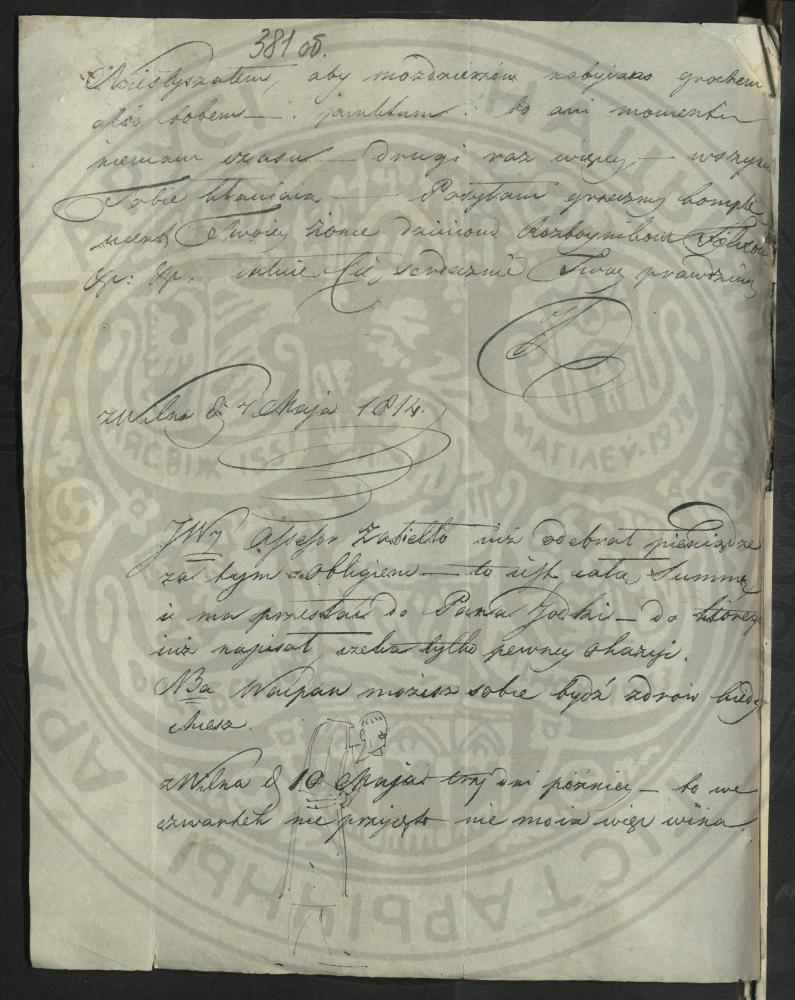 381 об.
Niesłyszałem, aby mozdzierzów nabijano grochem
albo bobem — punktum: bo ani momentu
niemam czasu — drugi raz więcey — wszyscy
Tobie kłaniaia — Posyłam grzeczny komple
ment Twoiey żonie dzieciom Rozboynikom
&p: &p: całuie Cię serdecznie Twoy prawdziwy
z Wilna d 7 Maja 1814.
JWy Assessor Zabiełło iuż odebrał pieniądze
za tym obligiem — to iest całą Summę
i ma przesłać do Pana Jodki — do którey
iuż napisał, czeka tylko pewney okazyi.
NBa Waćpan możesz sobie bydź zdrów kiedy
chcesz.
z Wilna d 10 Maja trzy dni pózniey — bo we
czwartek nie przyjęto nie moia więc wina